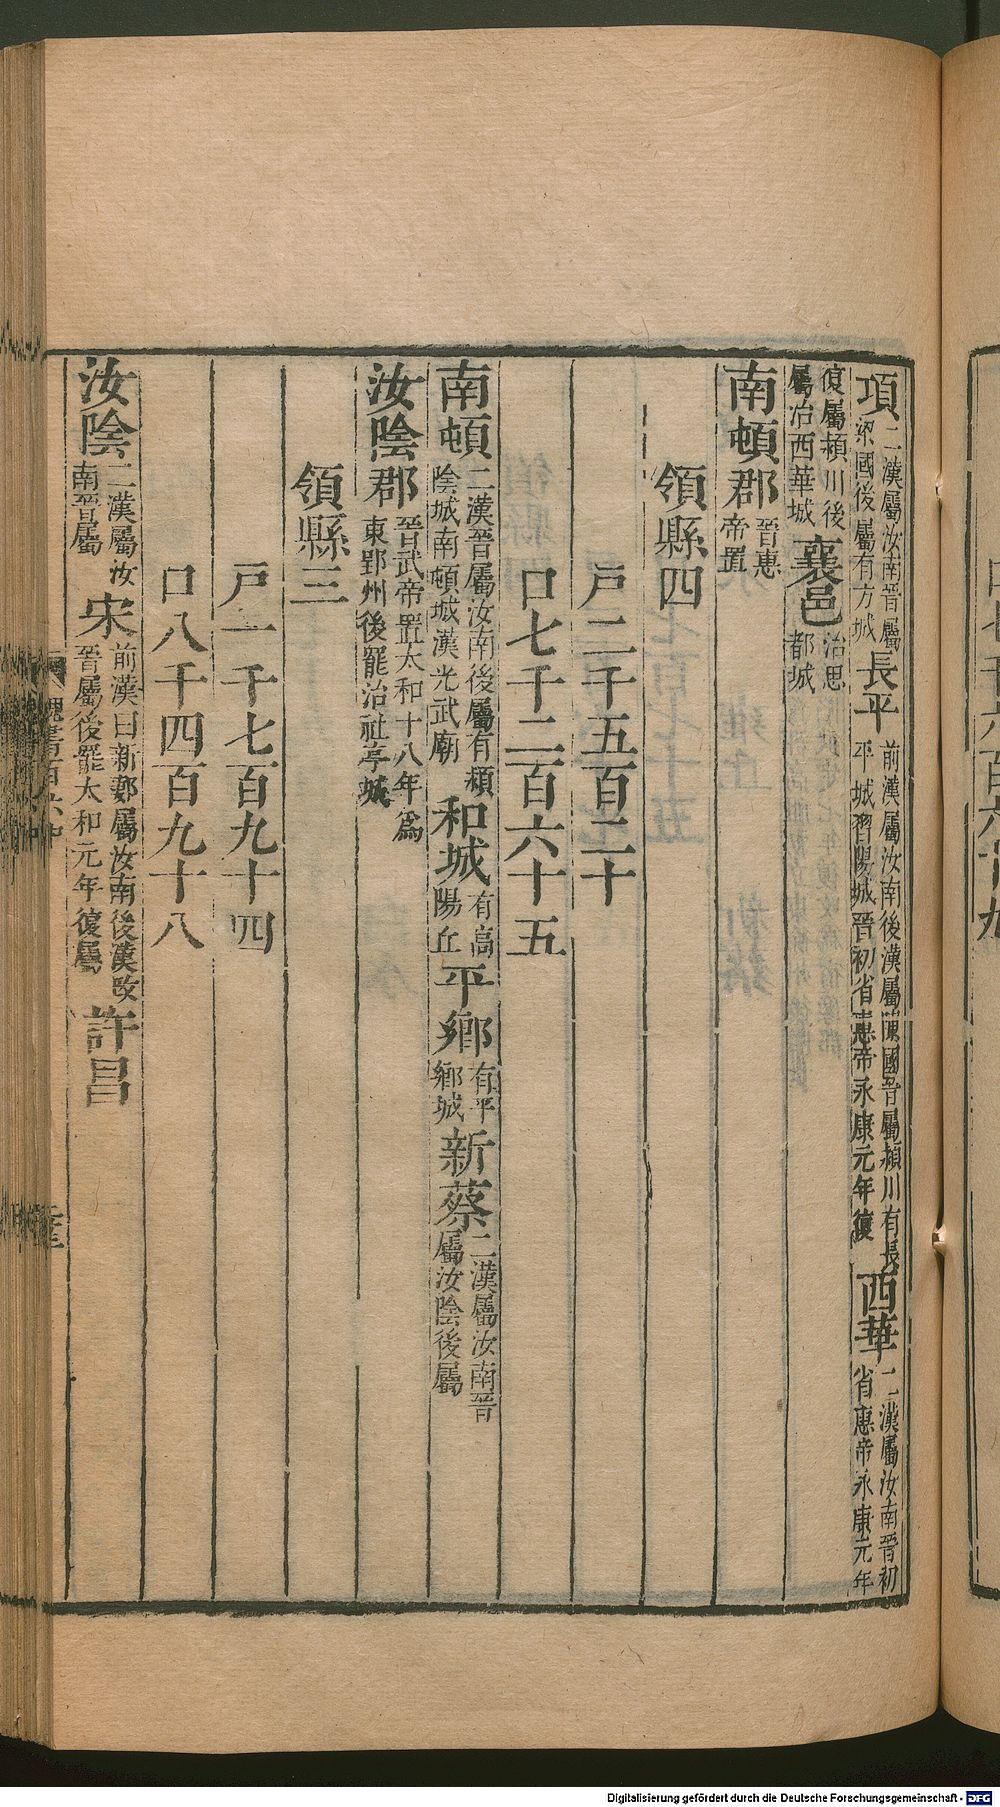 項二漢屬汝南晉屬梁國後屬有方城長平前漢屬汝南後漢屬陳國晉屬潁川有長平城習陽城晉初省惠帝永康元年復西華二漢屬汝南晉初省惠帝永康元年
復屬潁川後屬治西華城襄邑治思都城
南頓郡晉惠帝置
領縣四
戶二千五百二十
口七千二百六十五
南頓二漢晉屬汝南後屬有潁陰城南頓城漢光武廟和城有高陽丘平鄉有平鄉城新蔡二漢屬汝南晉屬汝陰後屬
汝陰郡晉武帝置太和十八年為東郢州後罷治社亭城
領縣三
戶一千七百九十四
口八千四百九十八
汝陰二漢屬汝南晉屬宋前漢曰新郪屬汝南後漢改晉屬後罷太和元年復屬許昌
Digitalisierung gefördert durch die Deutsche Forschungsgemeinschaft - DFG